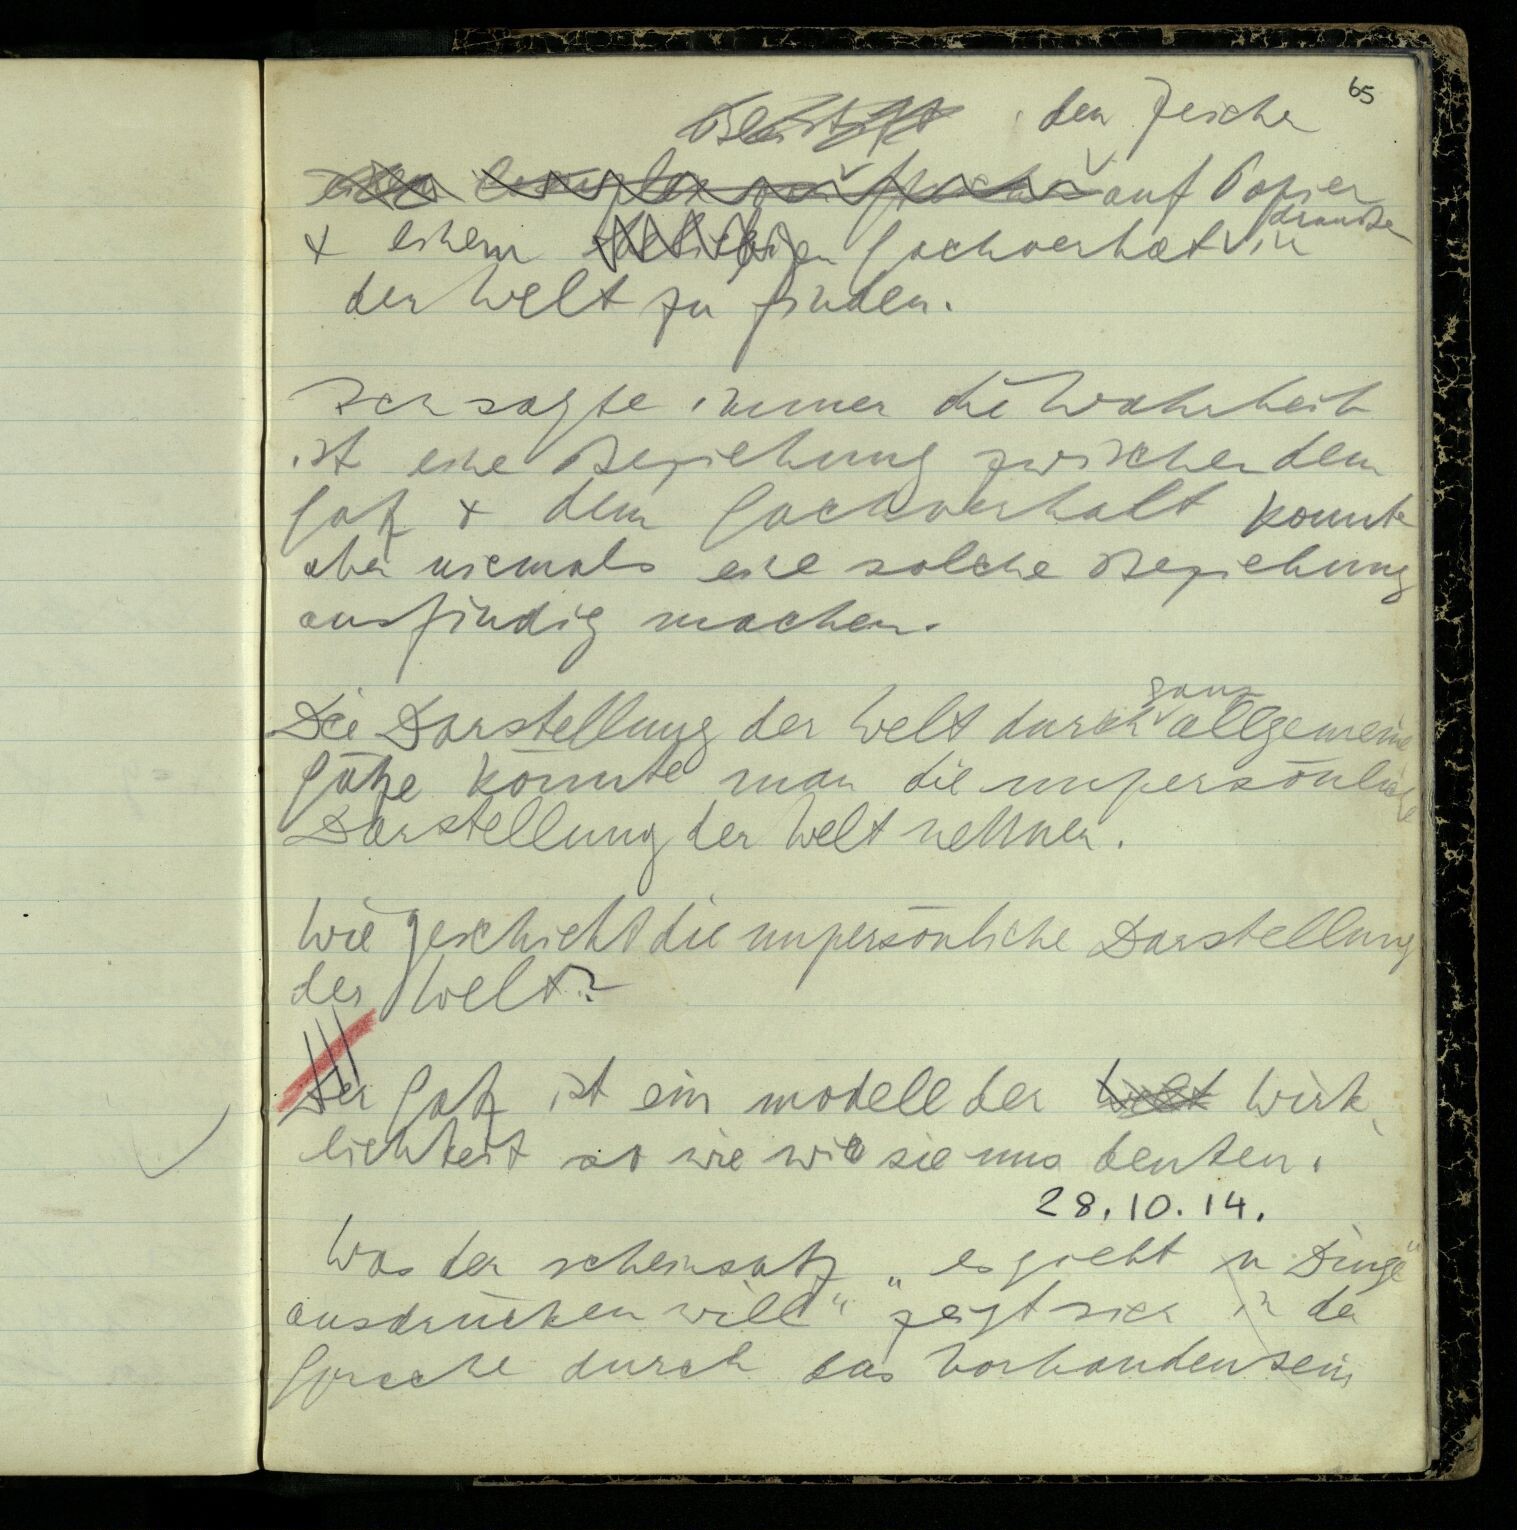 65
den Zeichen
auf Papier
+ einem Sachverhalt draußen in
der Welt zu finden.
Ich sagte immer die Wahrheit
ist eine Beziehung zwischen dem
Satz + dem Sachverhalt konnte
aber niemals eine solche Beziehung
ausfindig machen.
Die Darstellung der Welt durch ganz allgemeine
Sätze könnte man die unpersönliche
Darstellung der Welt nennen.
Wie geschieht die unpersönliche Darstellung
der Welt?
Der Satz ist ein Modell der Welt Wirk-
lichkeit so wie wir sie uns denken.
28.10.14.
Was der Scheinsatz „es giebt n Dinge“
ausdrücken will“ zeigt sich in der
Sprache durch das Vorhandensein